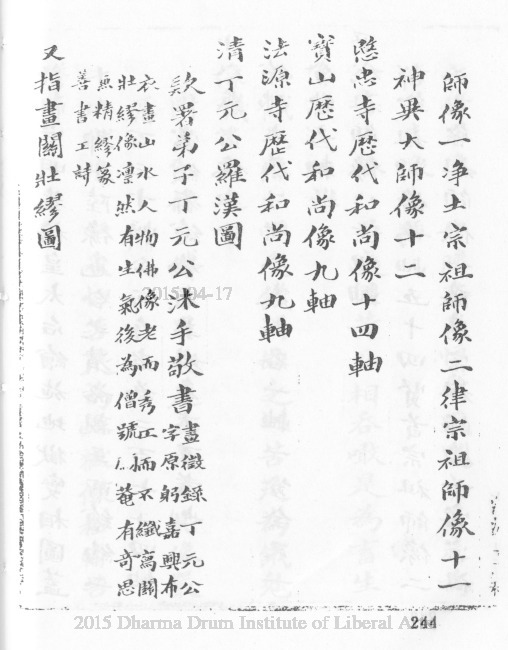 師像一淨土宗祖師像二律宗祖師像十一
神異大師像十二
愍忠寺歷代和尚像十四軸
寶山歷代和尚像九軸
法源寺歷代和尚像九軸
清丁元公羅漢圖
款署弟子丁元公沐手敬書
畫徵錄丁元公
字原躬嘉興布
衣畫山水人物佛像老而秀工而不纖寫關
壯繆像凜然有生氣後為僧號菴有奇思
兼精繆篆
善書工詩
又指畫關壯繆圖
2015-04-17
2015 Dharma Drum Institute of Liberal A
244